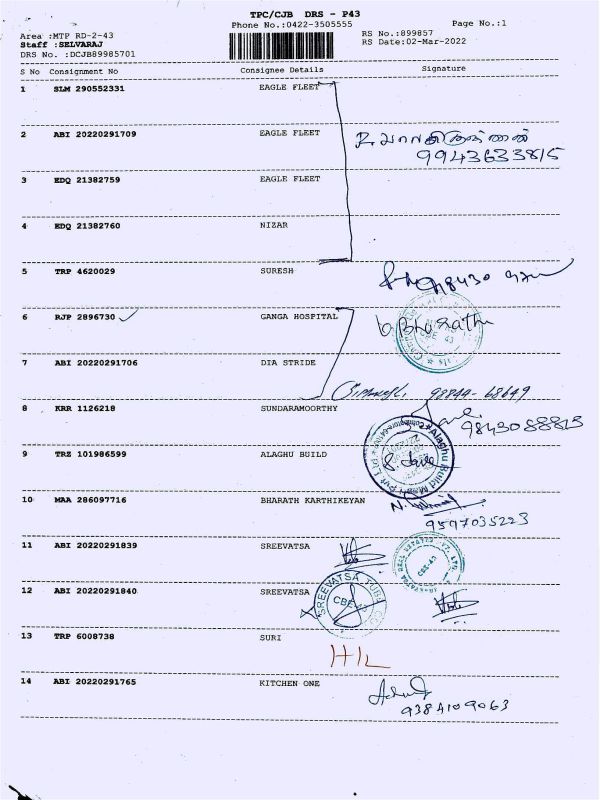 TPC/CJB DRS - P43
Phone No.:0422-3505555
Page No.:1
Area :MTP RD-2-43
RS No.:899857
Staff :SELVARAJ
RS Date:02-Mar-2022
DRS No. :DCJB89985701
S No Consignment No Consignee Details Signature
1 SLM 290552331 EAGLE FLEET
2 ABI 20220291709 EAGLE FLEET
9943633815
3 EDQ 21382759 EAGLE FLEET
4 EDQ 21382760 NIZAR
5 TRP 4620029 SURESH
6 RJP 2896730 GANGA HOSPITAL
b Bharathi
7 ABI 20220291706 DIA STRIDE
98844-68649
8 KRR 1126218 SUNDARAMOORTHY
9843088813
9 TRZ 101986599 ALAGHU BUILD
10 MAA 286097716 BHARATH KARTHIKEYAN
9597035223
11 ABI 20220291839 SREEVATSA
12 ABI 20220291840 SREEVATSA
SREEVATSA
CBE-43
13 TRP 6008738 SURI
14 ABI 20220291765 KITCHEN ONE
9384109063